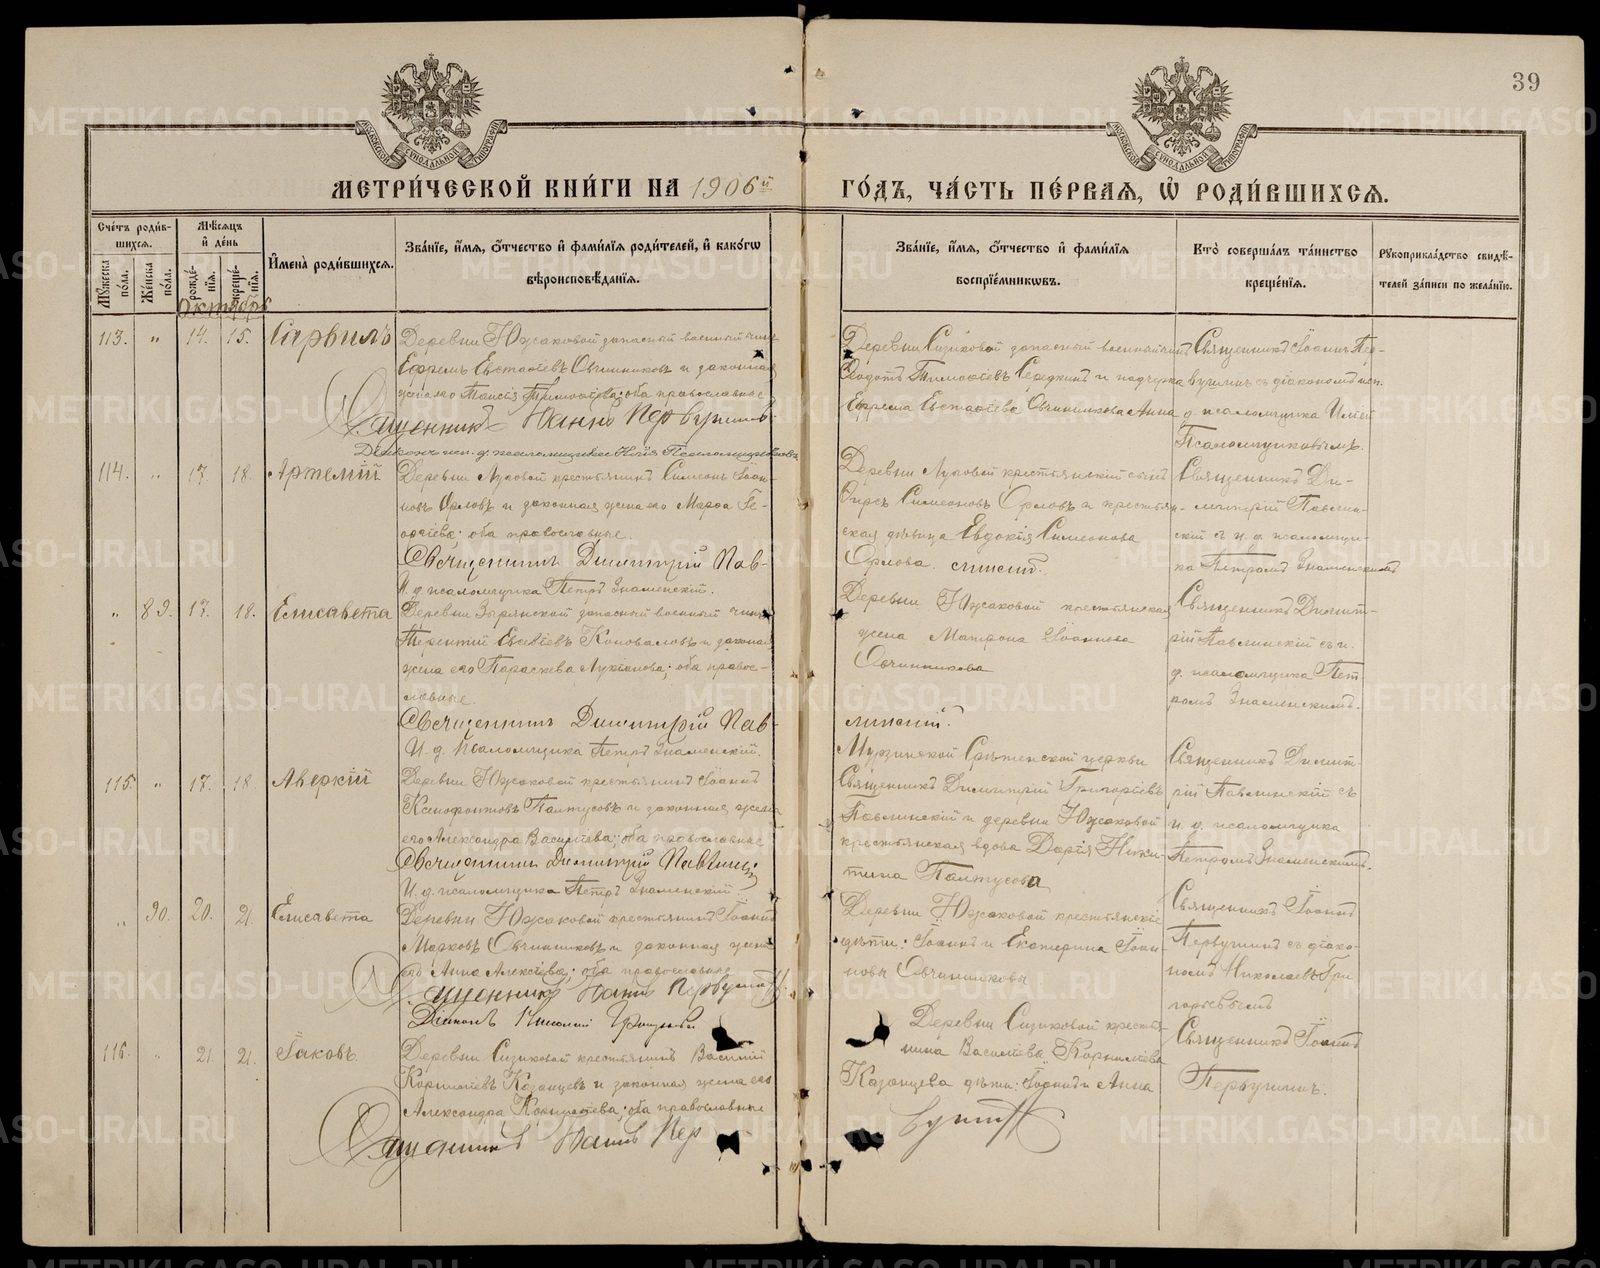 39
МОСКОВСКОЙ СѴНОДАЛЬНОЙ ТИПОГРАФІИ
МОСКОВСКОЙ СѴНОДАЛЬНОЙ ТИПОГРАФІИ
МЕТРИ́ЧЕСКОЙ КНИ́ГИ НА 1906й
ГО́ДЪ, ЧА́СТЬ ПЕ́РВАЯ, Ѿ РОДИ́ВШИХСЯ.
Сче́тъ роди́в-
шихся.
Мꙋ́жеска по́ла.
Же́нска по́ла.
Мѣ́сяцъ
и҆ де́нь
рожде́-
нїя.
креще́-
нїя.
И҆мена̀ роди́вшихся.
Зва́нїе, и҆́мя, ѻ҆́тчество и҆ фами́лїя роди́телей, и҆ како́гѡ
вѣроисповѣ́данїя.
Зва́нїе, и҆́мя, ѻ҆́тчество и҆ фами́лїя
воспрїе́мникѡвъ.
Кто̀ соверша́лъ та́инство
креще́нїя.
Рꙋкоприкла́дство свидѣ́-
телей за́писи по жела́нїю.
Октябрь
113. " 14. 15.
Деревни Южаковой запасный военный чинъ
Ефремъ Евстафіевъ Овчинниковъ и законная
жена его Таисія Тимофеева; оба православные
Священникъ Іоаннъ Первушинъ
Діаконъ исп. д. псаломщика Илія Псаломщиковъ
Деревни Сизиковой запасный военный чинъ
Феодотъ Тимофеевъ Середкинъ и
Ефрема Евстафіева Овчинникова Анна
Священникъ Іоаннъ Пер-
вушинъ съ діакономъ исп.
д. псаломщика Иліей
Псаломщиковымъ.
114. " 17. 18. Артемій
Деревни Луговой крестьянинъ Симеонъ Іоан-
новъ Орловъ и законная жена его Марфа Ге-
оргіева; оба православные.
Священникъ Димитрій Пав-
И. д. псаломщика Петръ Знаменскій.
Деревни Луговой крестьянскій сынъ
Фирсъ Симеоновъ Орловъ и крестьян-
ская дѣвица Евдокія Симеонова
Орлова. линскій.
Священникъ Ди-
митрій Павлин-
скій съ и. д. псаломщи-
ка Петромъ Знаменскимъ
" 89. 17. 18. Елисавета
Деревни Зырянской запасный военный чинъ
Терентий Коноваловъ и законная
жена его Параскева Лукіанова; оба право-
славные.
Священникъ Димитрій Пав-
И. д. псаломщика Петръ Знаменскій.
Деревни Южаковой крестьянская
жена Матрона Іоаннова
Овчинникова
линскій.
Священникъ Димит-
рій Павлинскій съ и.
д. псаломщика Пет-
ромъ Знаменскимъ.
115. " 17. 18. Аверкій
Деревни Южаковой крестьянинъ Іоаннъ
Ксенофонтовъ Палтусовъ и законная жена
его Александра Васильева; оба православные
Священникъ Димитрій Павлинскій
И. д. псаломщика Петръ Знаменскій.
Мурзинской Срѣтенской церкви
Священникъ Димитрій Григорьевъ
Павлинскій и деревни Южаковой
крестьянская вдова Дарія Ники-
тина Палтусова
Священникъ Димит-
рій Павлинскій съ
и. д. псаломщика
Петромъ Знаменскимъ.
" 90. 20. 21. Елисавета
Деревни Южаковой крестьянинъ Іоаннъ
Марковъ Овчинниковъ и законная жена
его Анна Алексіева; оба православные
Священникъ Іоаннъ Первушинъ
Діаконъ Николай
Деревни Южаковой крестьянскіе
дѣти: Іоаннъ и Екатерина Іоан-
новы Овчинниковы
Священникъ Іоаннъ
Первушинъ съ діако-
номъ Николаемъ Гри
горьевымъ
116. " 21. 21. Іаковъ.
Деревни Сизиковой крестьянинъ Василій
Корнилiевъ Казанцевъ и законная жена его
Александра; оба православные
Священникъ Іоаннъ Пер
Деревни Сизиковой крестья-
нина Василіева Корниліева
Казанцева дѣти: Іоаннъ и Анна
вушинъ
Священникъ Іоаннъ
Первушинъ.
METRIKI.GASO-URAL.RU